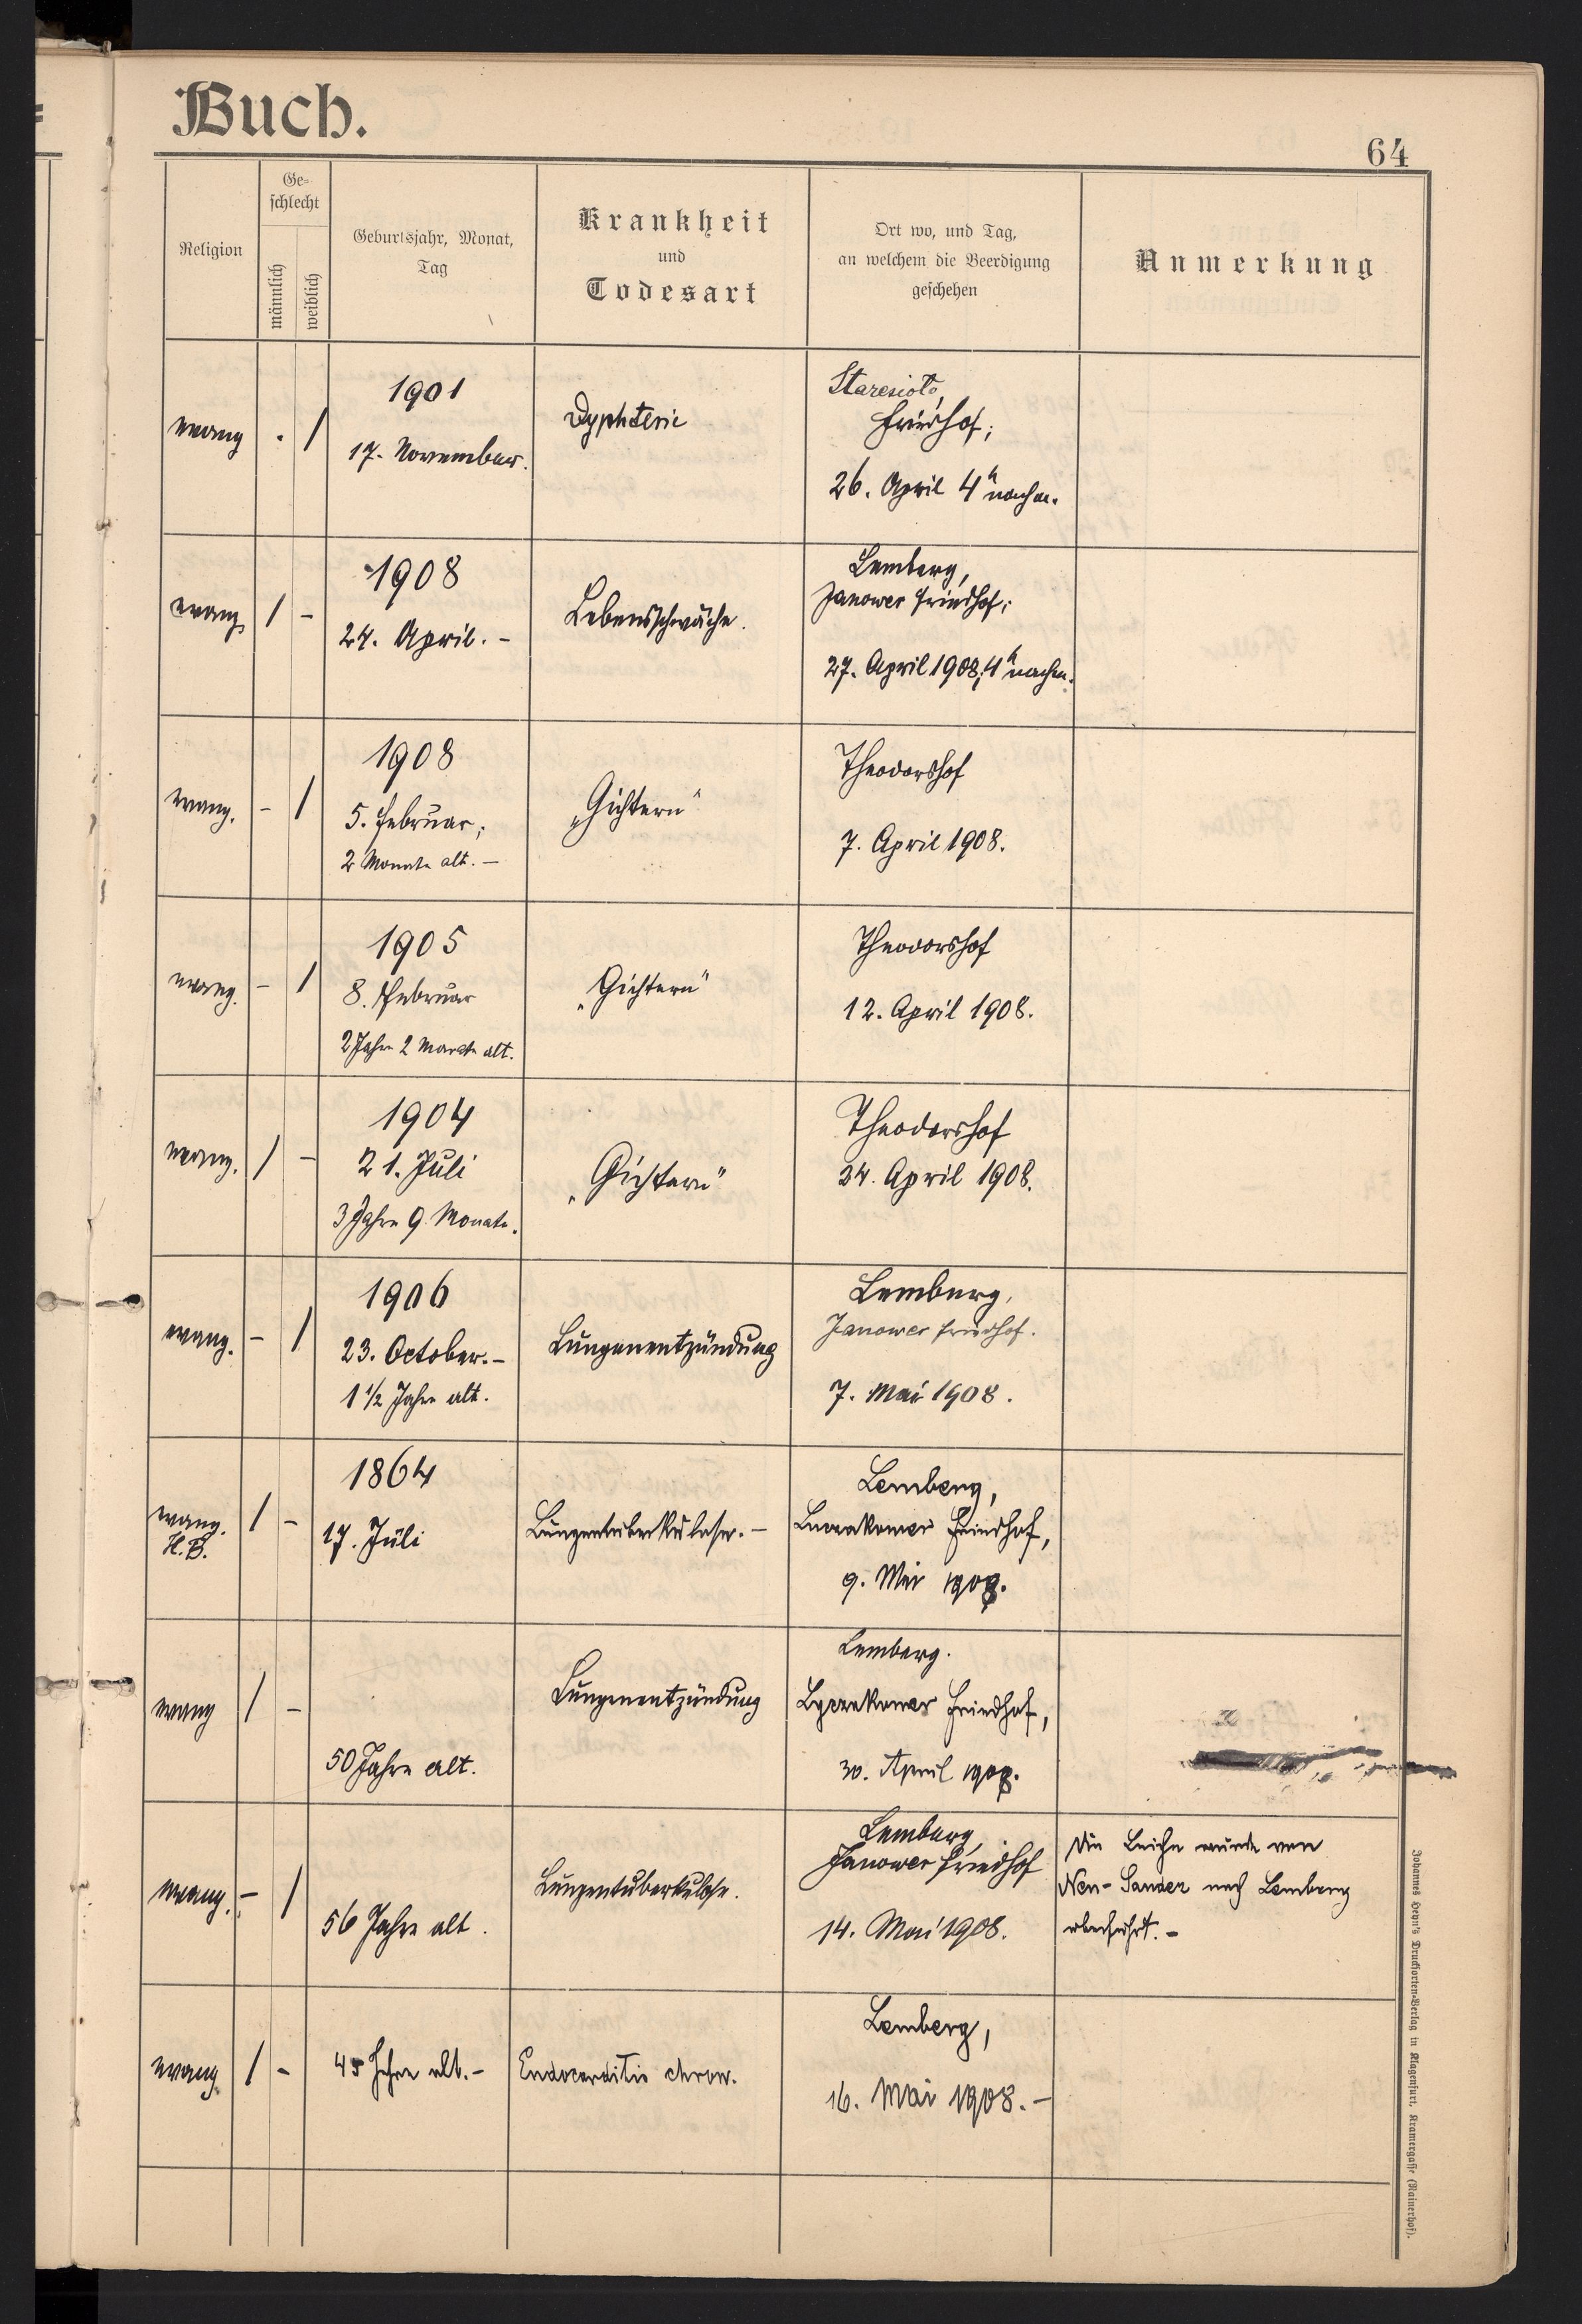 Buch.
64
Religion
Ge-
schlecht
männlich
weiblich
Geburtsjahr, Monat,
Tag
Krankheit
und
Todesart
Ort wo, und Tag,
an welchem die Beerdigung
geschehen
Anmerkung
evang
.
/
1901
17. November.
Dyphterie
Friedhof;
26. April 4h nachm.
evang.
/
-
1908
24. April. -
Lebensschwäche.
Lemberg,
Janower Friedhof;
27. April 1908, 4h nachm.
evang.
-
/
1908
5. Februar;
2 Monate alt. -
„Gichtern“
Theodorshof
7. April 1908.
evang.
-
/
1905
8. Februar
2 Jahre 2 Monate alt.
„Gichtern“
Theodorshof
12. April 1908.
evang.
/
-
1904
21. Juli
3 Jahre 9 Monate.
„Gichtern“
Theodorshof
24. April 1908.
evang.
-
/
1906
23. October. -
1 ½ Jahre alt.
Lungenentzündung
Lemberg,
Janower Friedhof.
7. Mai 1908.
evang.
H. B.
/
-
1864
17. Juli
Lungentuberkulose. -
Lemberg,
Friedhof,
9. Mai 1908.
evang
/
-
50 Jahre alt.
Lungenentzündung
Lemberg.
Lyczakower Friedhof,
30. April 1908.
evang.
-
/
56 Jahre alt.
Lungentuberkulose.
Lemberg,
Janower Friedhof
14. Mai 1908.
Die Leiche wurde von
Neu-Sandez nach Lemberg
überführt. -
evang.
/
-
45 Jahre alt. -
Endocarditis chron.
Lemberg,
16. Mai 1908. -
Johannes Heyn's Drucksorten-Verlag in Klagenfurt, Kramergasse (Rainerhof).